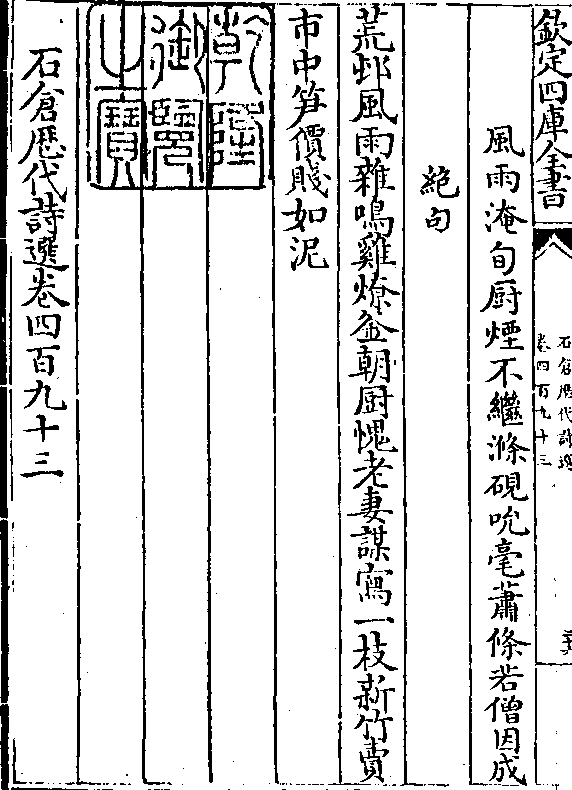 欽定四庫全書
石倉歷代詩選
卷四百九十三
風雨淹旬厨煙不繼滌硯吮毫蕭條若僧因成
絶句
荒邨風雨雜鳴雞燎釜朝厨愧老妻謀寫一枝新竹賣
市中笋價賤如泥
乾隆
御覽
之寶
石倉歴代詩選卷四百九十三